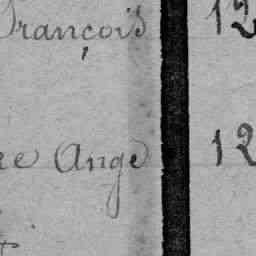 François 12
re Ange 12